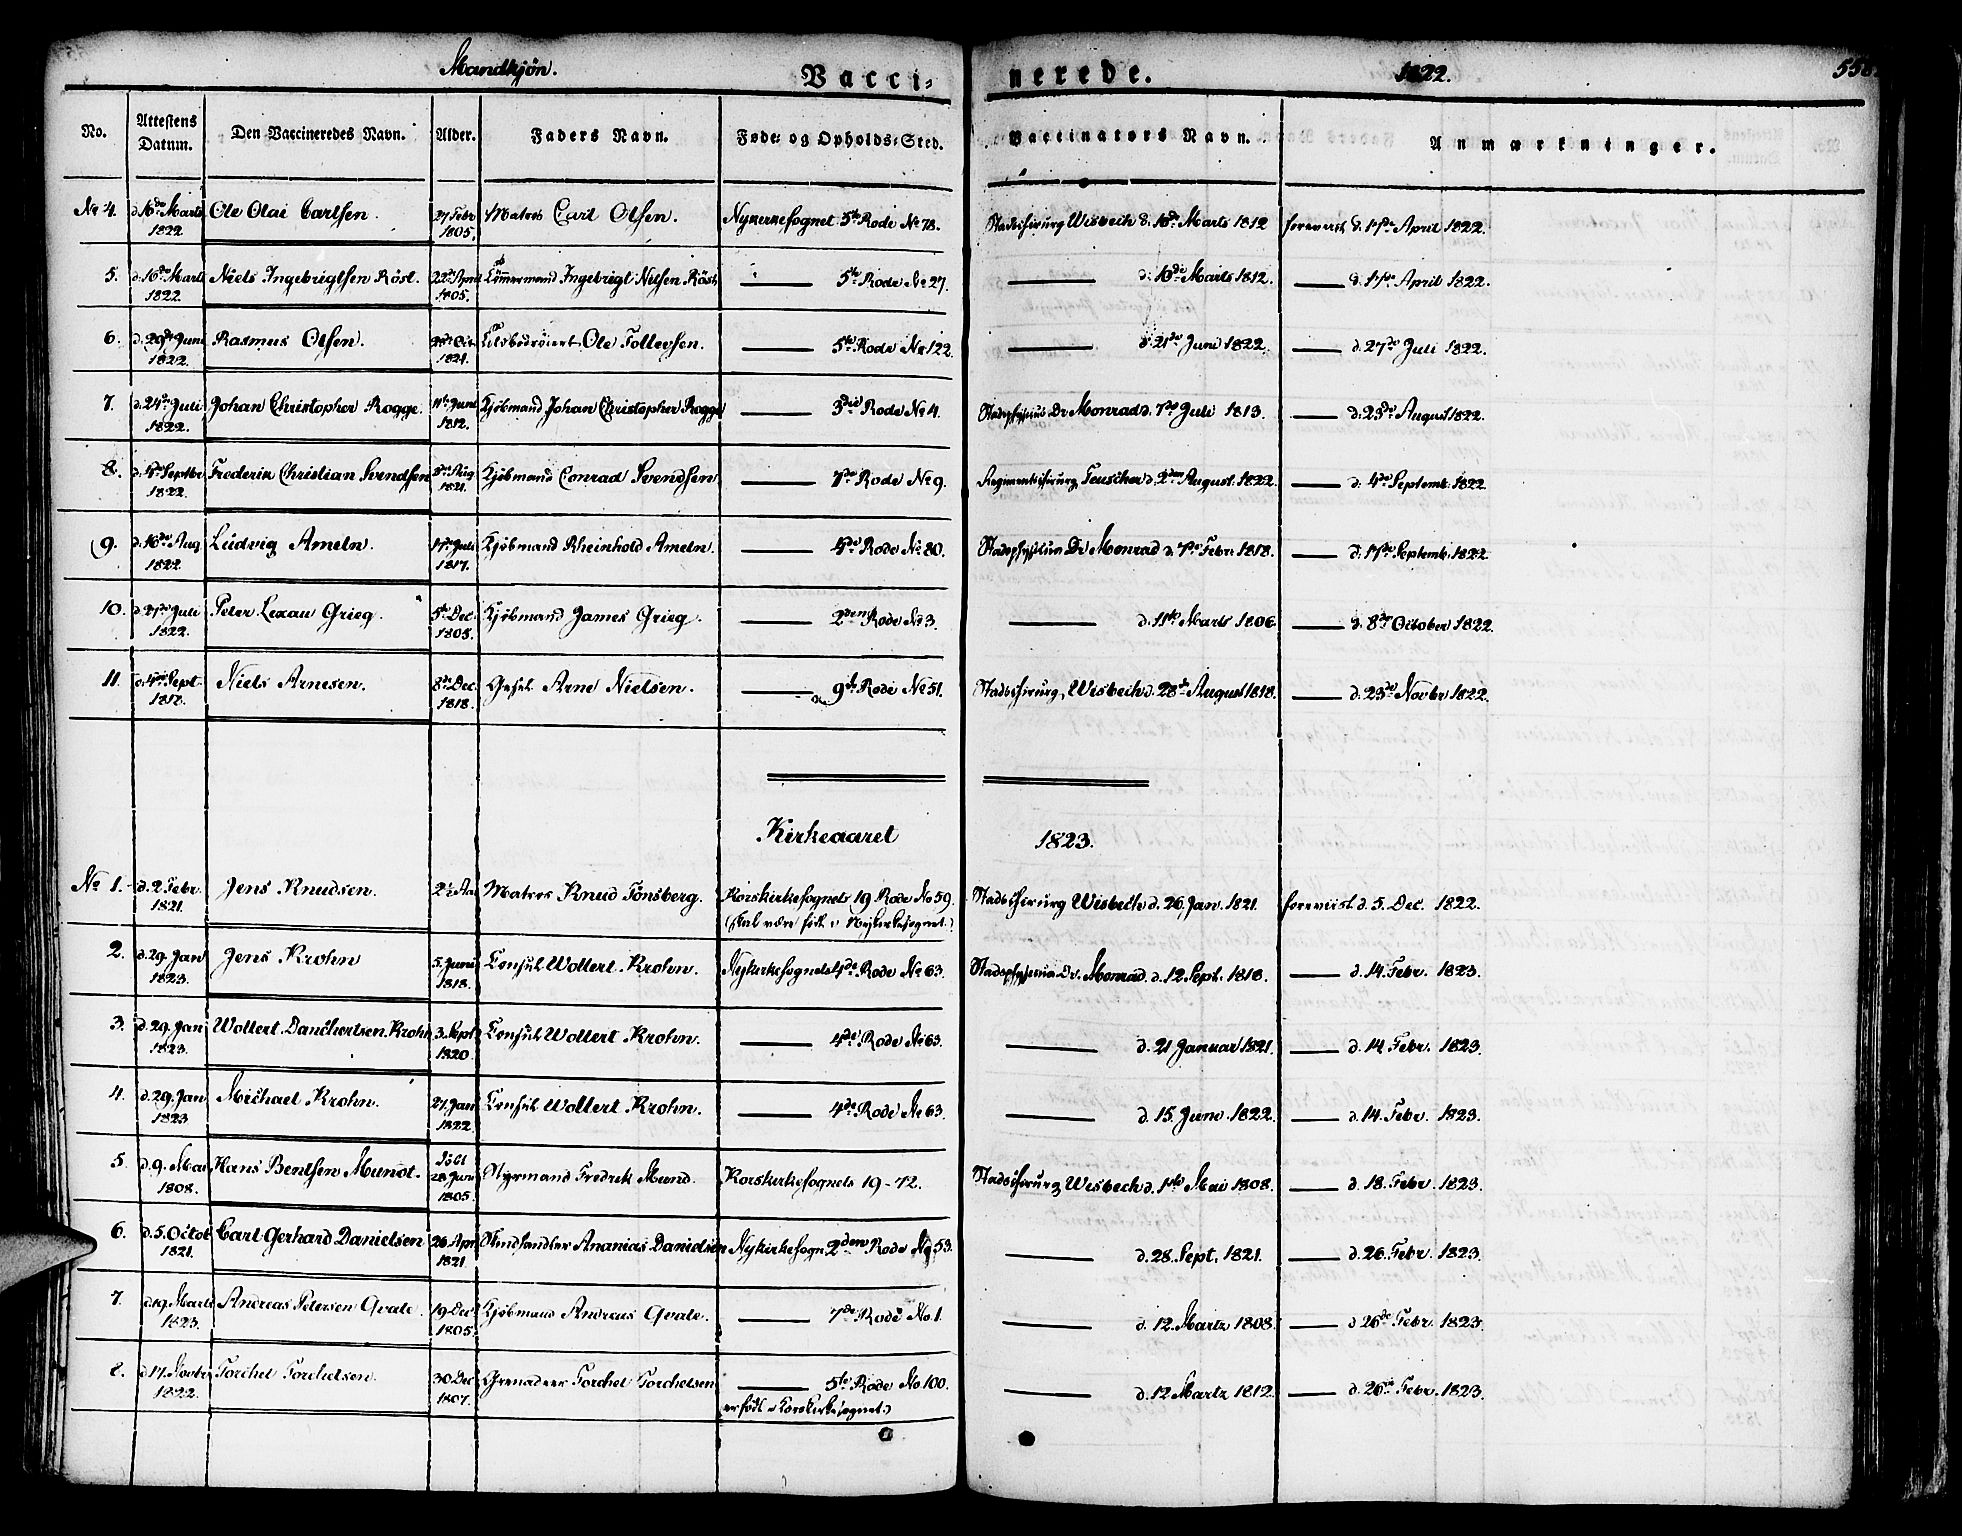 Mandkjøn. Vacci- nerede. 1822.
No. Attestens Datum. Den Vaccineredes Navn. Alder. Faders Navn. Føde- og Opholds-Sted. Vaccinators Navn. Anmærkninger.
No 4. d. 16de Marts 1822 Ole Olai Carlsen. 27 Febr 1805. Matros Carl Olsen. Nykirkesognet 5te Rode No 78. Stadschirurg Wisbech d. 16de Marts 1812 foreviist d. 17de April 1822.
5. d. 16de Marts 1822 Niels Ingebrigtsen Röst. 22de April 1805. Tömmermand Ingebrigt Nilsen Röst — 5te Rode No 27. — d. 16de Marts 1812. — d. 17de April 1822.
6. d. 29de Juni 1822. Rasmus Olsen. Oct. 1821. Ole Tollevsen. — 5te Rode No 122. — d. 21de Juni 1822. — d. 27de Juli 1822.
7. d. 24de Juli 1822. Johan Christopher Rogge. 11te Juni 1812. Kjøbmand Johan Christopher Rogge — 3die Rode No 4. Stadsphysicus Dr Monrad d. 7de Juli 1813. — d. 23de August 1822.
8. d. 4de Septbr 1822. Frederik Christian Svendsen Aug 1821. Kjøbmand Conrad Svendsen — 7de Rode No 9. Regimentschirurg Teuscher d. 2den August 1822. — d. 4de Septemb. 1822
9. d. 16de Aug 1822 Ludvig Ameln. 17de Juli 1817. Kjøbmand Rheinhold Ameln. — 4de Rode No 80. Stadsphysicus Dr Monrad d. 7de Febr. 1818. — d. 17de Septemb. 1822
10. d. 27de Juli 1822. Peter Lexau Grieg. 5te Dec. 1805. Kjøbmand James Grieg. — 2den Rode No 3. — d. 11te Marts 1806. — d. 8de October 1822.
11. d. 4de Sept. 1818. Niels Arnesen. 8de Dec. 1818. Gesel Arne Nielsen. — 9de Rode No 51. Stadschirurg Wisbech d. 28de August 1818. — d. 23de Novbr 1822.
Kirkeaaret 1823.
No 1. d. 2 Febr. 1821. Jens Knudsen. 2½ Aar Matros Knud Tönsberg. Korskirkesognets 19 Rode No 59. (skal være født i Nykirkesognet.) Stadschirurg Wisbech d. 26 Jan. 1821. foreviist d. 5. Dec. 1822.
2. d. 29. Jan 1823. Jens Krohn 5. Juni 1818. Consul Wollert Krohn. Nykirkesognets 4de Rode No 63. Stadsphysicus Dr. Monrad d. 12. Sept. 1818. — d. 14. Febr. 1823.
3. d. 29. Jan 1823. Wollert Danchertsen Krohn 3. Sept 1820. Consul Wollert Krohn. — 4de Rode No 63. — d. 21 Januar 1821. — d. 14 Febr. 1823.
4. d. 29. Jan 1823 Michael Krohn. 27. Jan 1822. Consul Wollert Krohn. — 4de Rode No 63. — d. 15. Juni 1822. — d. 14. Febr. 1823.
5. d. 9. Mai 1808. Hans Bentsen Mundt. født 28 Juni 1805. Styrmand Fredrik Mund. Korskirkesognets 19-72. Stadschirurg Wisbech d. 1ste Mai 1808. — d. 18. Febr. 1823.
6. d. 5. Octob 1821. Carl Gerhard Danielsen 26 Apr. 1821. Ananias Danielsen Nykirkesogn 2den Rode No 53. — d. 28. Sept. 1821. — d. 26. Febr. 1823.
7. d. 19. Marts 1823. Andreas Petersen Qvale. 19 Dec 1805. Kjøbmand Andreas Qvale. — 7de Rode No 1. — d. 12. Martz 1808. — d. 26de Febr. 1823.
8. d. 17. Novbr 1822. Torchel Torchelsen. 30 Dec 1807. Grenadeer Torchel Torchelsen — 5te Rode No 100. (er født i Korskirkesognet.) — d. 12 Martz 1812. — d. 26de Febr. 1823.